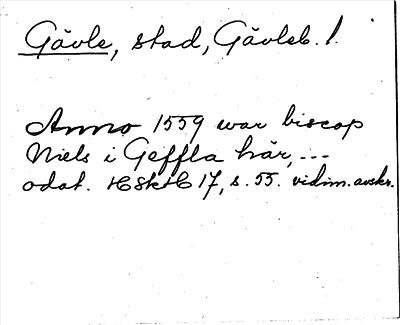 Gävle, stad, Gävleb. l.
Anno 1559 war biscop
Niels i Geffla här, ---
odat. HSkH 17, s. 55. vidim. avskr.